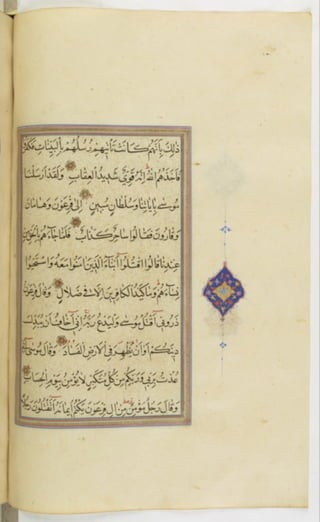 ذٰلِكَ بِاَنَّهُمْ كَانَتْ تَاْتِيهِمْ رُسُلُهُمْ بِالْبَيِّنَاتِ فَكَفَرُوا
فَاَخَذَهُمُ اللّٰهُ اِنَّهُ قَوِىٌّ شَدِيدُ الْعِقَابِ وَلَقَدْ اَرْسَلْنَا
مُوسٰى بِاٰيَاتِنَا وَسُلْطَانٍ مُبِينٍ اِلٰى فِرْعَوْنَ وَهَامَانَ
وَقَارُونَ فَقَالُوا سَاحِرٌ كَذَّابٌ فَلَمَّا جَاءَهُمْ بِالْحَقِّ مِنْ
عِنْدِنَا قَالُوا اقْتُلُوا اَبْنَاءَ الَّذِينَ اٰمَنُوا مَعَهُ وَاسْتَحْيُوا
نِسَاءَهُمْ وَمَا كَيْدُ الْكَافِرِينَ اِلَّا فِى ضَلَالٍ وَقَالَ فِرْعَوْنُ
ذَرُونِى اَقْتُلْ مُوسٰى وَلْيَدْعُ رَبَّهُ اِنِّى اَخَافُ اَنْ يُبَدِّلَ
دِينَكُمْ اَوْ اَنْ يُظْهِرَ فِى الْاَرْضِ الْفَسَادَ وَقَالَ مُوسٰى اِنِّى
عُذْتُ بِرَبِّى وَرَبِّكُمْ مِنْ كُلِّ مُتَكَبِّرٍ لَا يُؤْمِنُ بِيَوْمِ الْحِسَابِ
وَقَالَ رَجُلٌ مُؤْمِنٌ مِنْ اٰلِ فِرْعَوْنَ يَكْتُمُ اِيمَانَهُ اَتَقْتُلُونَ رَجُلًا